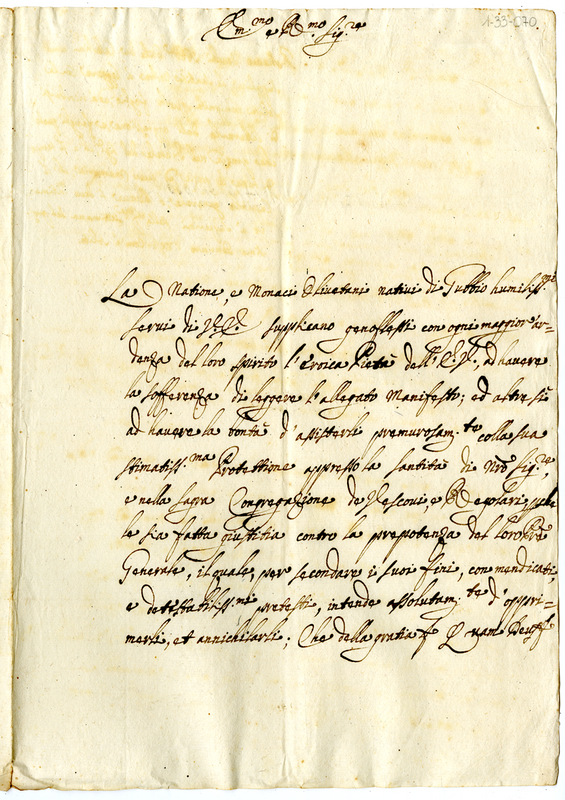 1-33-070
Em.mo e R.mo Sig.re
La Natione, e Monaci Olivetani nativi di Gubbio humiliss.mi
servi di V.E. supplicano genoflessi con ogni maggior ar=
denza del loro spirito l'eroica Pietà dell' E.V., ad havere
la sofferenza di leggere l'allegato Manifesto; ed altresì
ad havere la bontà d'assisterli premurosam.te colla sua
stimatiss.ma Protettione appresso la Santità di Nro Sig.re,
e nella sagra Congregazione de Vescovi, e Regolari,
le sia fatta giustitia contro la prepotenza del loro Pre
Generale, il quale, per secondare i suoi fini, con mendicati,
e detestabiliss.mi pretesti, intende assolutam.te d'oppri=
merli, et annichilarli; Che della gratia &c Quam Deus &c